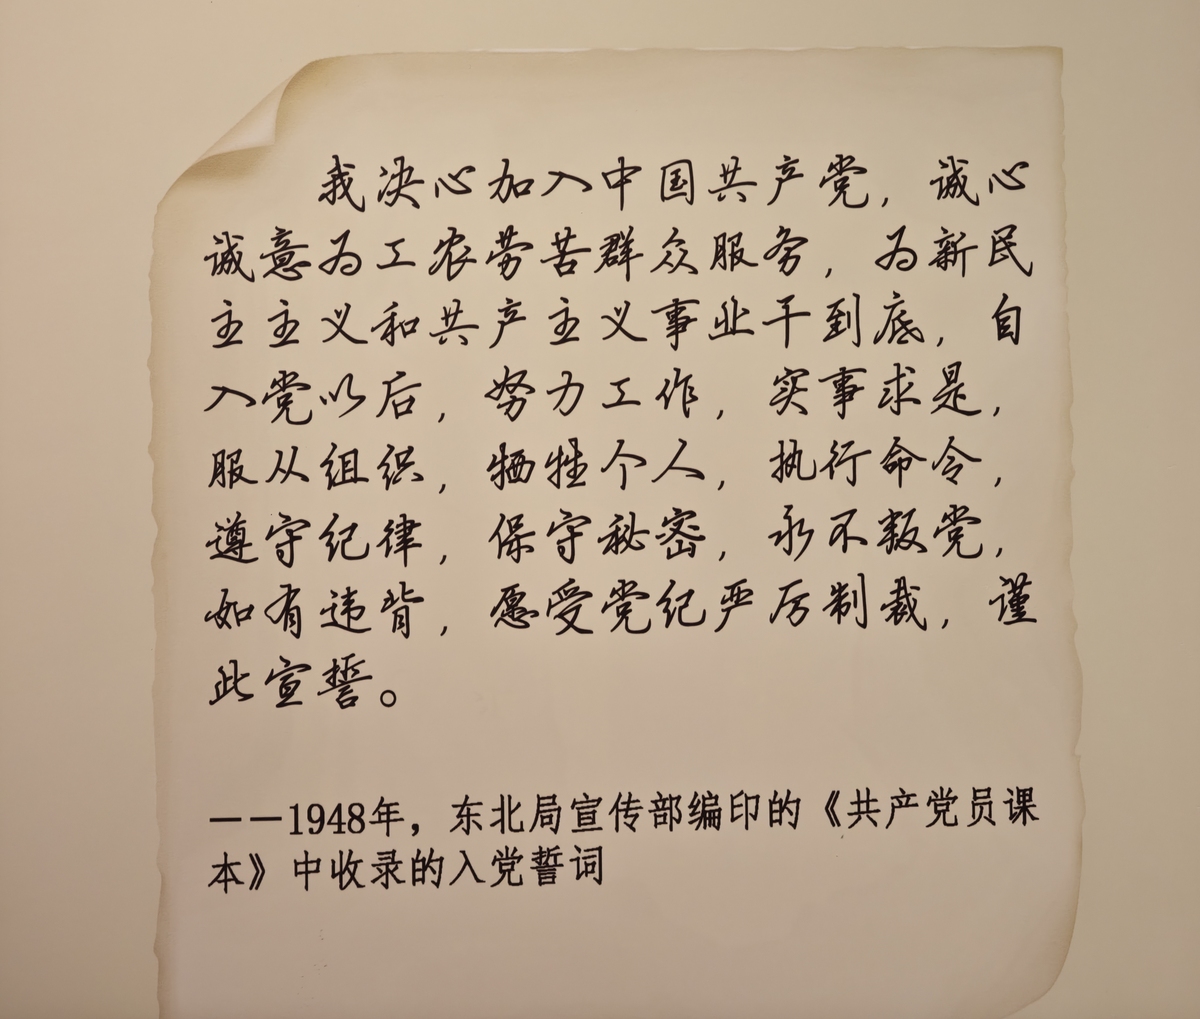 我决心加入中国共产党，诚心
诚意为工农劳苦群众服务，为新民
主主义和共产主义事业干到底，自
入党以后，努力工作，实事求是，
服从组织，牺牲个人，执行命令，
遵守纪律，保守秘密，永不叛党，
如有违背，愿受党纪严厉制裁，谨
此宣誓。
——1948年，东北局宣传部编印的《共产党员课
本》中收录的入党誓词